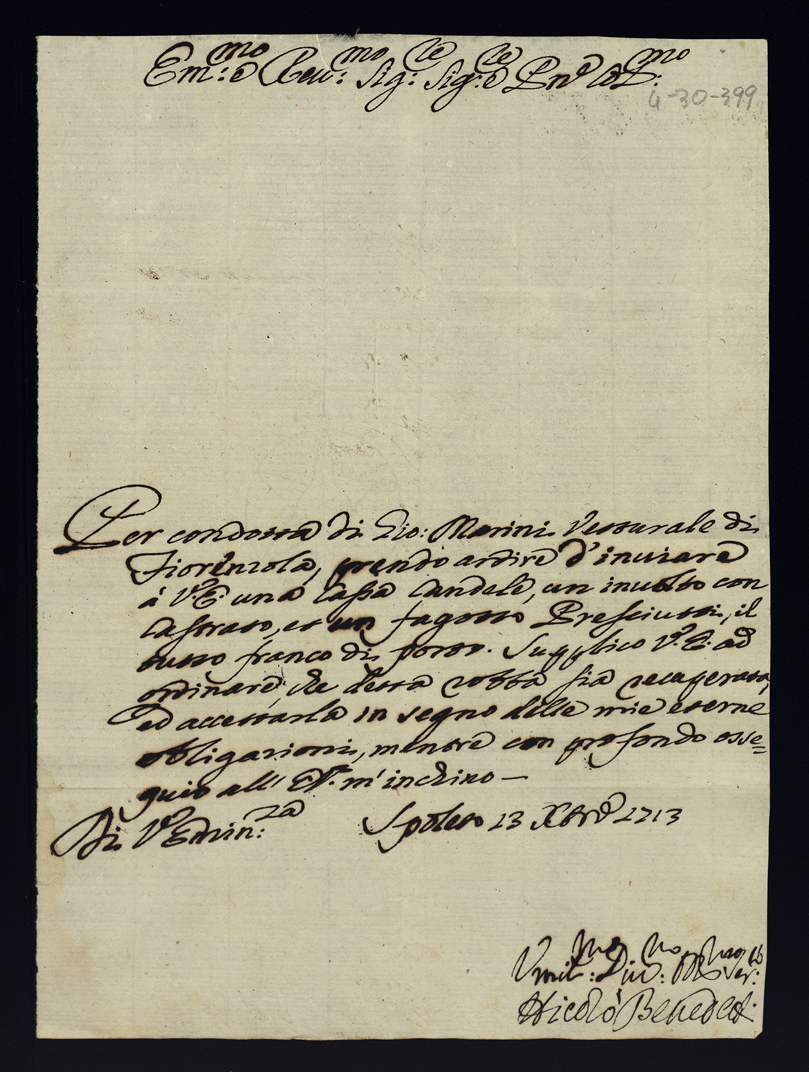 Em:mo e Reu:mo Sig:re Sig:re e Pne Col:mo
4-30-399
Per condotta di Gio: Marini Vetturale di
Fiorenzola, prendo ardire d'inuiare
à V.E. una Cassa Candele, un inuolto con
Castrato, et un fagotto Presciutti, il
tutto franco di porto. Supplico V.E. ad
ordinare che detta robba sia recuperata,
ed accettarla in segno delle mie eterne
obligazioni, mentre con profondo osse=
quio all' E.V. m'inchino —
Di V.Emin:za Spoleto 13 Xbre 1713
Vmil:mo Diu:mo Ser:
Nicolò Benedet: